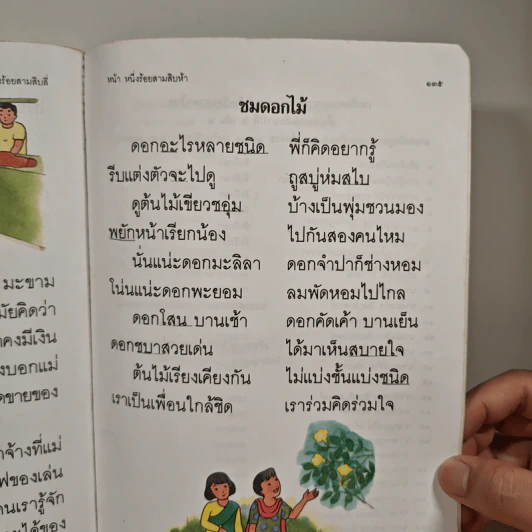 ร้อยสามสิบสี่
หน้า หนึ่งร้อยสามสิบห้า ๑๓๕
ชมดอกไม้
ดอกอะไรหลายชนิด พี่ก็คิดอยากรู้
รีบแต่งตัวจะไปดู ถูสบู่ห่มสไบ
ดูต้นไม้เขียวชอุ่ม บ้างเป็นพุ่มชวนมอง
พยักหน้าเรียกน้อง ไปกันสองคนไหม
นั่นแน่ะดอกมะลิลา ดอกจำปาก็ช่างหอม
โน่นแน่ะดอกพะยอม ลมพัดหอมไปไกล
ดอกโสน บานเช้า ดอกคัดเค้า บานเย็น
ดอกชบาสวยเด่น ได้มาเห็นสบายใจ
ต้นไม้เรียงเคียงกัน ไม่แบ่งชั้นแบ่งชนิด
เราเป็นเพื่อนใกล้ชิด เราร่วมคิดร่วมใจ
มะขาม
มัยคิดว่า
าคงมีเงิน
งบอกแม่
ดขายของ
าจ้างที่แม่
ฟของเล่น
านเรารู้จัก
าะได้ของ